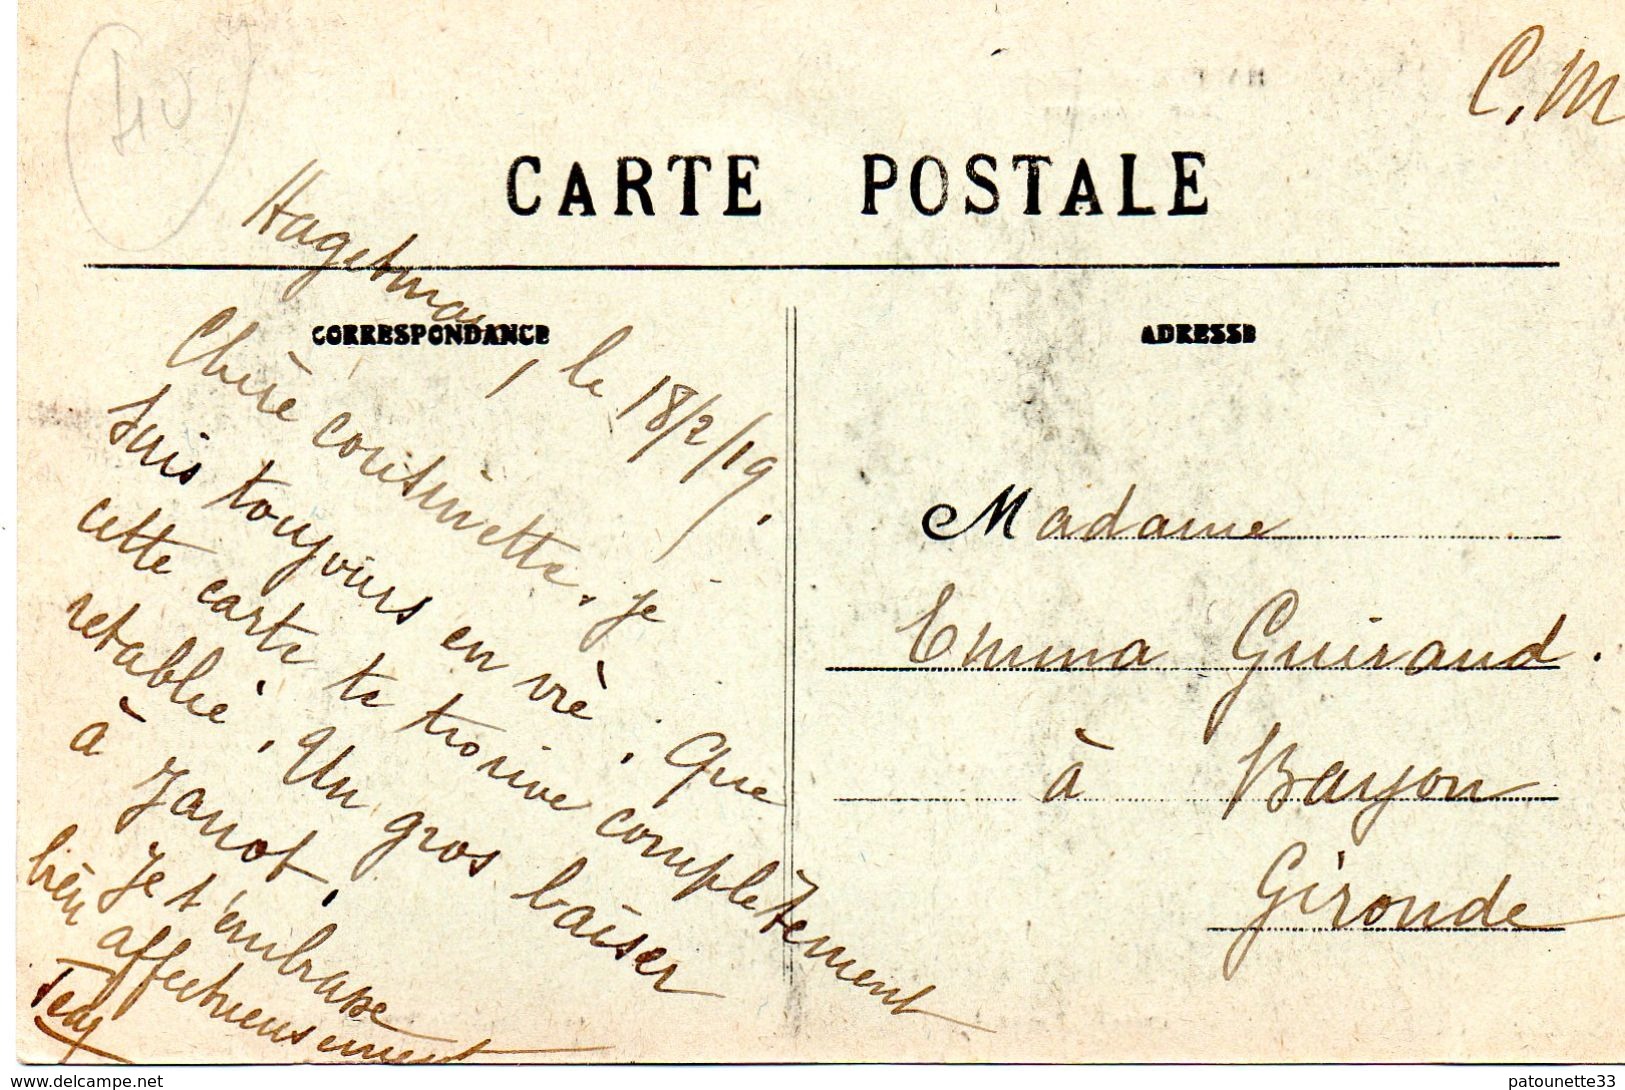 40
C.M
CARTE POSTALE
CORRESPONDANCE
ADRESSE
Hagetmau, le 18/2/19.
Chère cousinette. Je
suis toujours en vie. Que
cette carte te trouve complètement
retablie. Un gros baiser
à Janot.
Je t'embrasse
bien affectueusement
Madame
Emma Guiraud.
à Bayon
Gironde
www.delcampe.net
patounette33